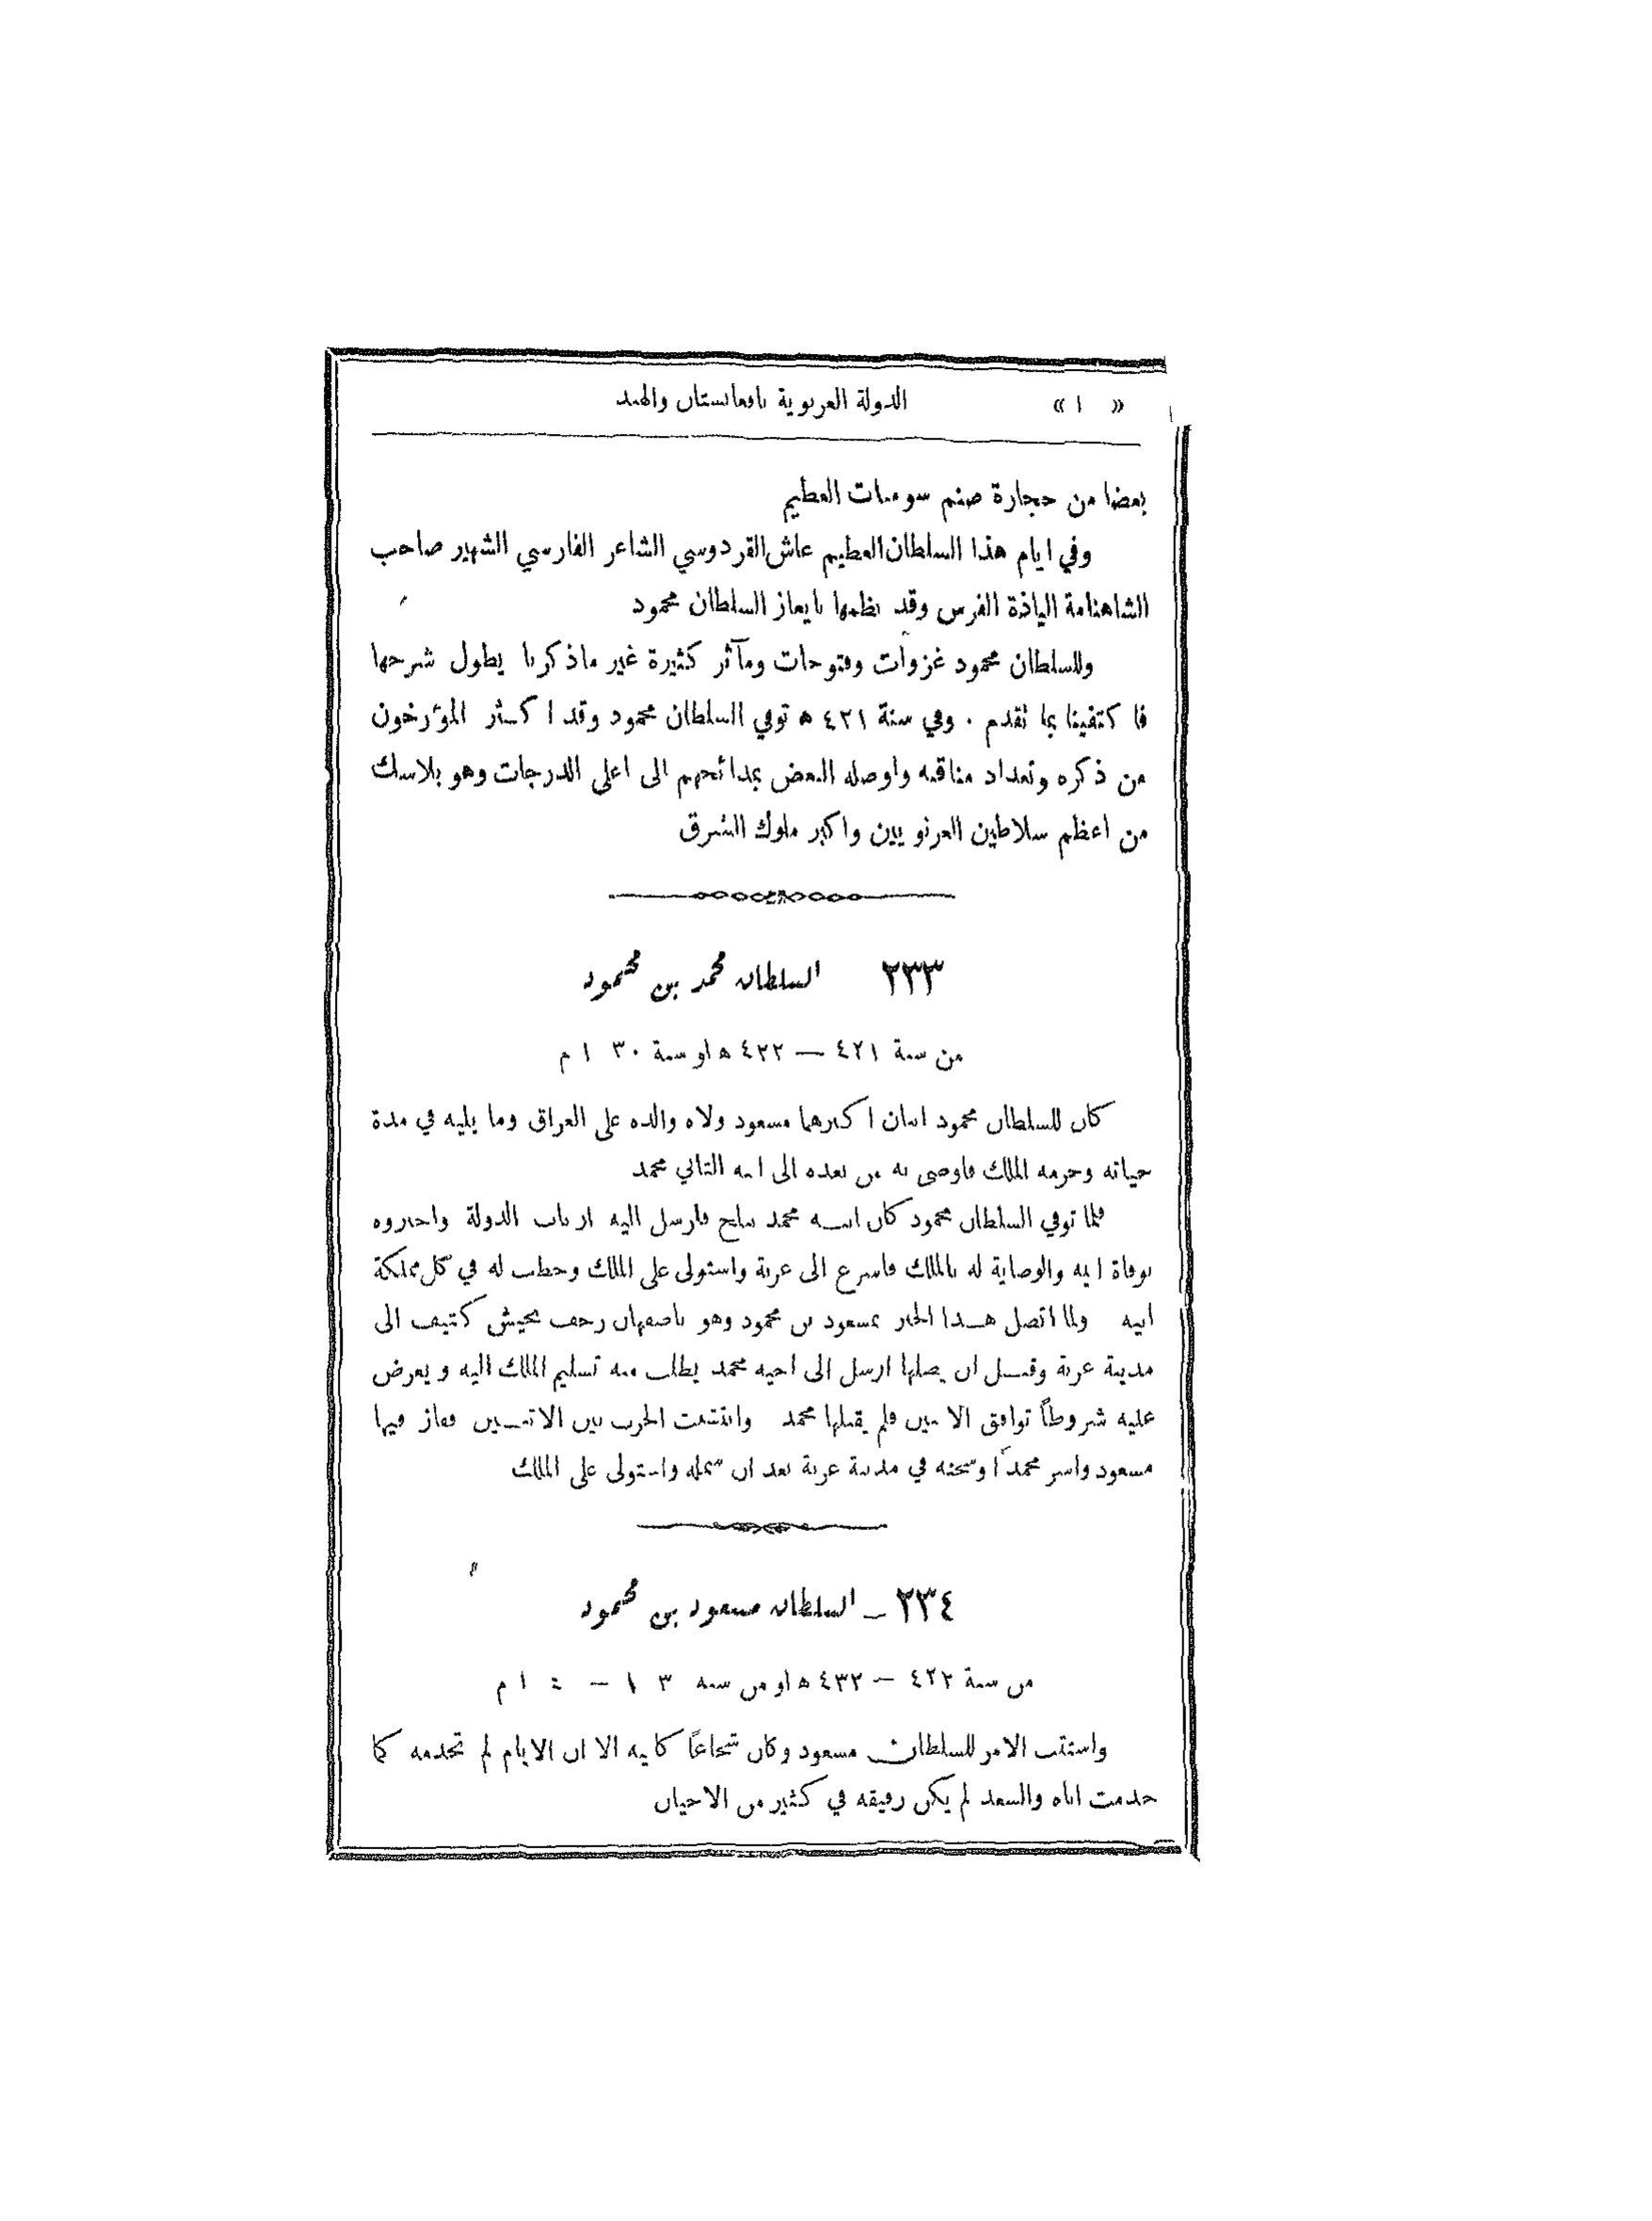 « ١ » الدولة الغزنوية بافغانستان والهند
بعضا من حجارة صنم سومنات العظيم
وفي ايام هذا السلطان العظيم عاش الفردوسي الشاعر الفارسي الشهير صاحب
الشاهنامة الياذة الفرس وقد نظمها بايعاز السلطان محمود
وللسلطان محمود غزوات وفتوحات ومآثر كثيرة غير ما ذكرنا يطول شرحها
فاكتفينا بما تقدم . وفي سنة ٤٢١ ه توفي السلطان محمود وقد اكثر المؤرخون
من ذكره وتعداد مناقبه واوصله البعض بمدائحهم الى اعلى الدرجات وهو بلا شك
من اعظم سلاطين الغزنويين واكبر ملوك الشرق
٢٣٣ السلطان محمد بن محمود
من سنة ٤٢١ — ٤٢٢ ه او سنة ٣٠ ١ م
كان للسلطان محمود ابنان اكبرهما مسعود ولاه والده على العراق وما يليه في مدة
حياته وحرمه الملك فاوصى به من بعده الى ابنه الثاني محمد
فلما توفي السلطان محمود كان ابنه محمد ببلخ فارسل اليه ارباب الدولة واخبروه
بوفاة ابيه والوصاية له بالملك فاسرع الى غزنة واستولى على الملك وخطب له في كل مملكة
ابيه ولما اتصل هذا الخبر بمسعود بن محمود وهو باصفهان زحف بجيش كثيف الى
مدينة غزنة وقبل ان يصلها ارسل الى اخيه محمد يطلب منه تسليم الملك اليه ويعرض
عليه شروطاً توافق الاثنين فلم يقبلها محمد وانتشبت الحرب بين الاثنين ففاز فيها
مسعود واسر محمداً وسجنه في مدينة غزنة بعد ان سمله واستولى على الملك
٢٣٤ – السلطان مسعود بن محمود
من سنة ٤٢٢ – ٤٣٢ ه او من سنة ٣ ١ – ١ م
واستتب الامر للسلطان مسعود وكان شجاعاً كابيه الا ان الايام لم تخدمه كما
خدمت اباه والسعد لم يكن رفيقه في كثير من الاحيان